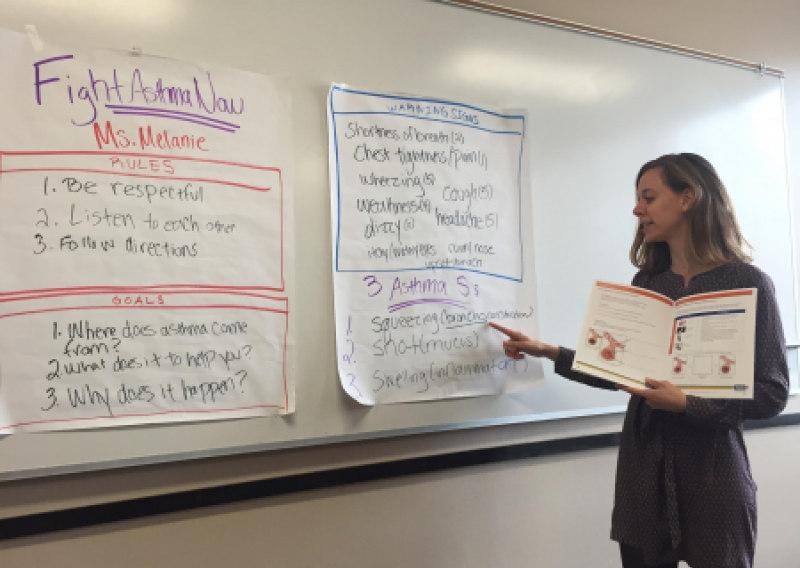 Fight Asthma Now
Ms. Melanie
RULES
1. Be respectful
2. Listen to each other
3. Follow directions
GOALS
1. Where does asthma come
from?
2. what does it to help you?
3. Why does it happen?
WARNING SIGNS
Shortness of breath (2)
Chest tightness/pain (1)
wheezing
cough (5)
weakness
headache (5)
dizzy
itchy/watery eyes runny nose
upset stomach
3 Asthma Ss
1. Squeezing (
2. Snot (mucus)
3 Swelling (inflammatory)